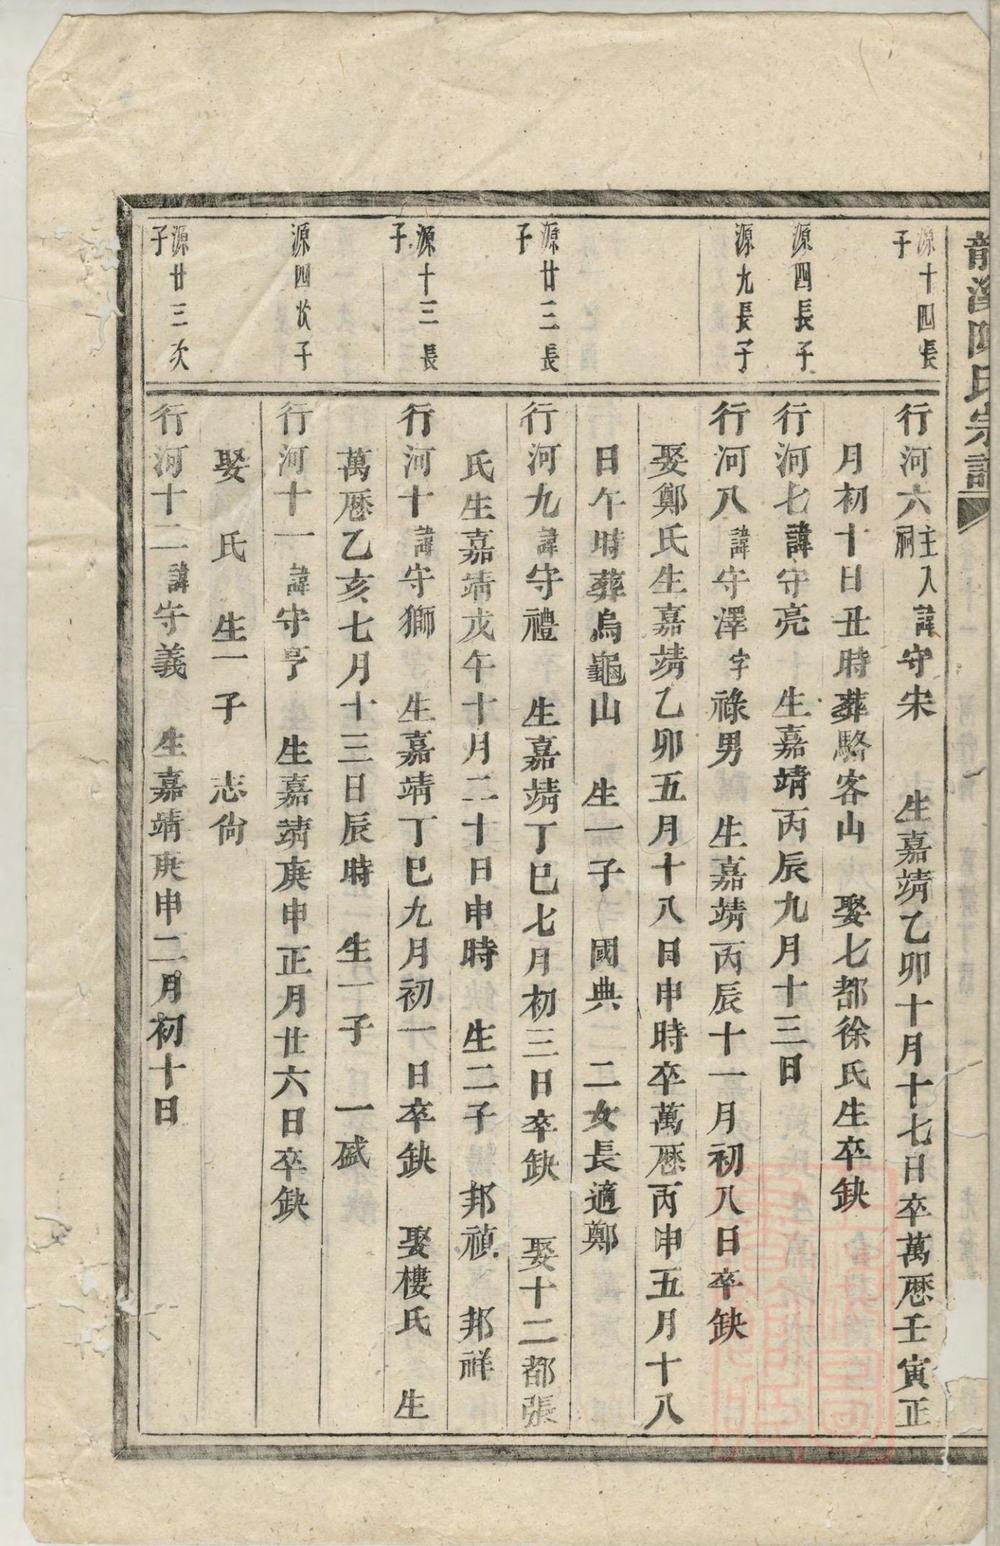 龍溪陳氏宗譜
源十四長子
行河六主入祠諱守宋 生嘉靖乙卯十月十七日卒萬厯壬寅正
月初十日丑時葬駱客山 娶七都徐氏生卒缺
源四長子
行河七諱守亮 生嘉靖丙辰九月十三日
源九長子
行河八諱守澤字祿男 生嘉靖丙辰十一月初八日卒缺
娶鄭氏生嘉靖乙卯五月十八日申時卒萬厯丙申五月十八
日午時葬烏龜山 生一子 國典 二女長適鄭
源廿三長子
行河九諱守禮 生嘉靖丁巳七月初三日卒缺 娶十二都張
氏生嘉靖戊午十月二十日申時 生二子 邦禎 邦祥
源十三長子
行河十諱守獅 生嘉靖丁巳九月初一日卒缺 娶樓氏 生
萬厯乙亥七月十三日辰時 生一子 一盛
源四次子
行河十一諱守亨 生嘉靖庚申正月廿六日卒缺
娶 氏 生一子 志尙
源廿三次子
行河十二諱守義 生嘉靖庚申二月初十日